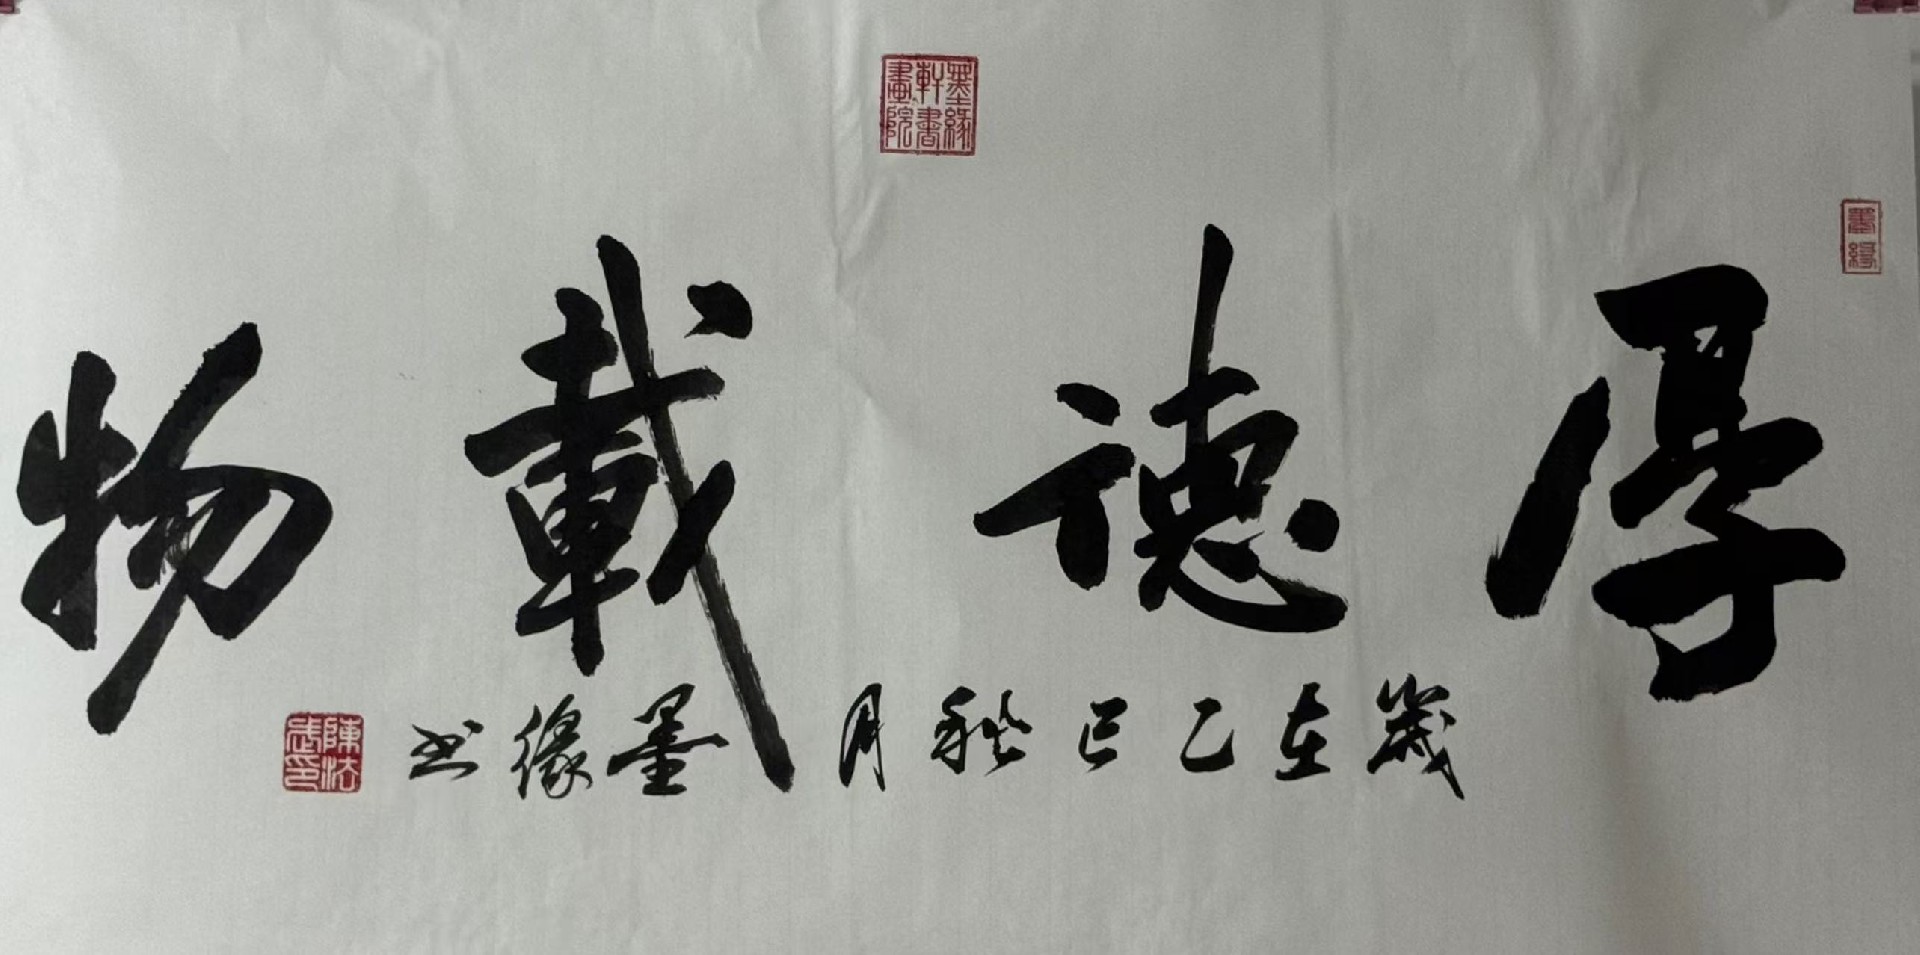 厚德載物
歲在乙巳秋月墨緣书
墨緣軒書畫院
墨緣
陳法武印